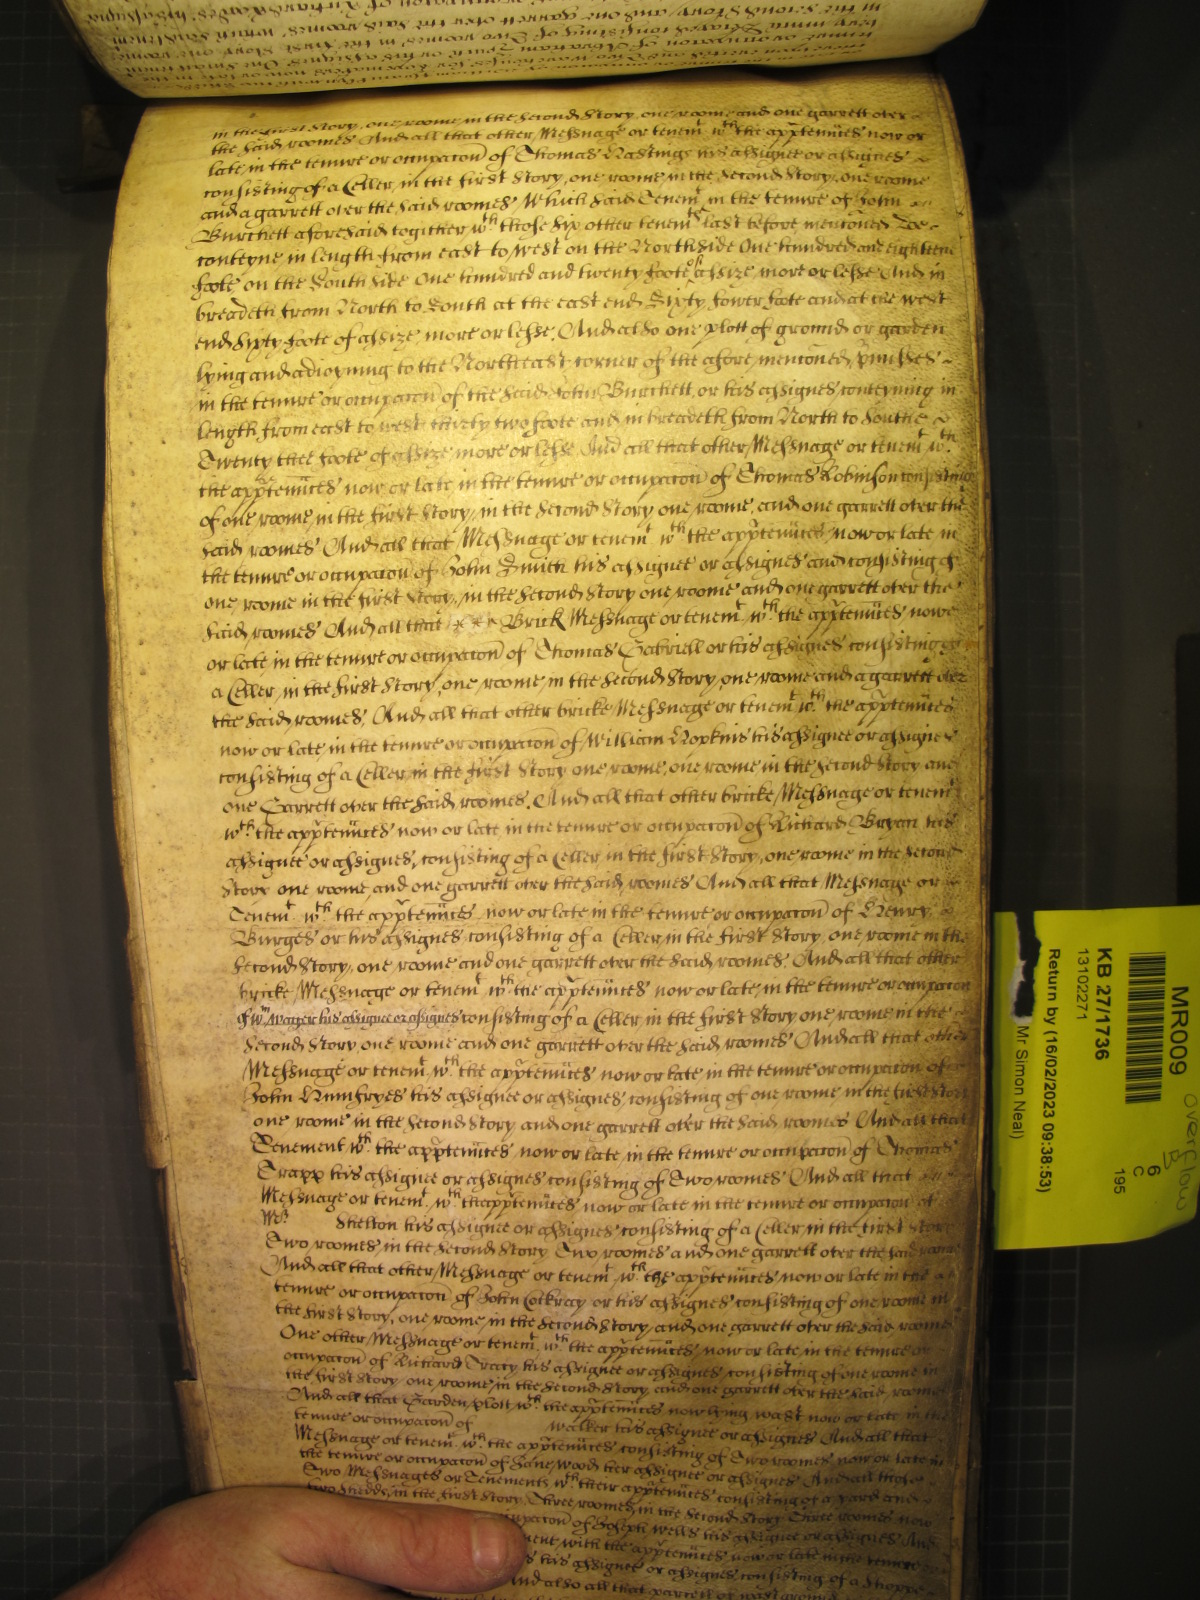 in the first Story, one roome, in the Second Story, one roome, and one garrett over
the said roomes And all that other Messuage or tenemt. wth. the apptenũces now or
late in the tenure or occupacoñ of Thomas Hastings his assignee or assignes
consisting of a Celler, in the first Story, one roome in the Second Story, one roome
and a garrett over the said roomes Which said Tenemt. in the tenure of John
Burchett aforesaid together wth. those six other tenemts. last before mencõned Doe
conteyne in length from east to west on the Northside One hundred and eighteene
foote on the South side One hundred and twenty foote of assize more or lesse And in
breadeth from North to South at the east end Sixty fower foote and at the west
end sixty foote of assize, more or lesse. And also one plott of ground or garden
lying and adioyning to the Northeast corner of the afore mencõned p̃misses
in the tenure or occupacoñ of the said John Burchett, or his assignes conteyning in
length from east to west thirty two foote and in breadeth from North to Southe
Twenty thee foote of assize more or lesse And all that other Messuage or tenemt. wth.
the apptenũces now or late in the tenure or occupacoñ of Thomas Robinson consisting
of one roome, in the first Story, in the Second Story one roome, and one garrett over the
said roomes And all that Messuage or tenemt. wth. the apptenũces now or late in
the tenure or occupacoñ of John Smith his assignee or assignes and consisting of
one roome in the first Story, in the Second Story one roome and one garrett over the
said roomes And all that Brick Messuage or tenemt. wth. the apptenũces nowe
or late in the tenure or occupacoñ of Thomas Gabriell or his assignes consisting of
a Celler, in the first Story, one roome, in the Second Story, one roome and a garrett over
the said roomes, And all that other bricke Messuage or tenemt. wth. the apptenũces
now or late in the tenure or occupacoñ of William Hopkins his assignee or assignes
consisting of a Celler, in the first Story one roome, one roome in the Second Story and
one Garrett over the said roomes. And all that other bricke Messuage or tenemt.
wth. the apptenũces now or late in the tenure or occupacoñ of Richard Bryan his
assignee or assignes, consisting of a Celler in the first Story, one roome in the Second
Story one roome, and one garrett over the said roomes And all that Messuage or
Tenemt. wth. the apptenũces now or late in the tenure or occupacoñ of Henry
Burges or his assignes consisting of a Celler in the first Story, one roome in the
Second Story, one roome and one garrett over the said roomes. And all that other
bricke Messuage or tenemt. wth. the apptenũces now or late, in the tenure or occupacon
of Wm. Wager his assignee or assignes consisting of a Celler, in the first Story one roome in the
Second Story one roome and one garrett over the said roomes And all that other
Messuage or tenemt. wth. the apptenũces now or late in the tenure or occupacon of
John Humfryes his assignee or assignes consisting of one roome in the first Story
one roome in the Second Story and one garrett over the said roomes And all that
Tenement wth. the apptenũces now or late in the tenure or occupacoñ of Thomas
Trapp his assignee or assignes consisting of Two roomes And all that
Messuage or tenemt. wth. the apptenũces now or late in the tenure or occupacon of
Shelton his assignee or assignes consisting of a Celler, in the first Story
Two roomes in the Second Story Two roomes and one garrett over the said roomes
And all that other Messuage or tenemt. wth. the apptenũces now or late in the
tenure or occupacoñ of John Cockray or his assignes consisting of one roome in
the first Story, one roome in the Second Story, and one garrett over the said roomes
One other Messuage or tenemt. wth. the apptenũces now or late in the tenure or
occupacoñ of Richard Tracy his assignee or assignes consisting of one roome in
the first Story one roome in the Second Story and one garrett over the said roomes
And all that Garden plott wth. the apptenũces now lying wast now or late in the
tenure or occupacoñ of Walker his assignee or assignes And all that
Messuage or tenemt. wth. the apptenũces consisting of Two roomes now or late in
the tenure or occupacoñ of Jane Wood her assignee or assignes And all those
Two Messuages or Tenements wth. their apptenũces consisting of a yard and
two shedds, in the first Story Three roomes, in the Second Story Three roomes now
of Joseph Wells his assignee or assignes And
with the apptenũces now or late in the tenure
his assignee or assignes consisting of a Shoppe
And also all that parcell of wast ground
MR009
KB 27/1736
13102271
Return by (16/02/2023 09:38:53)
Mr Simon Neal)
6
C
195
Overflow